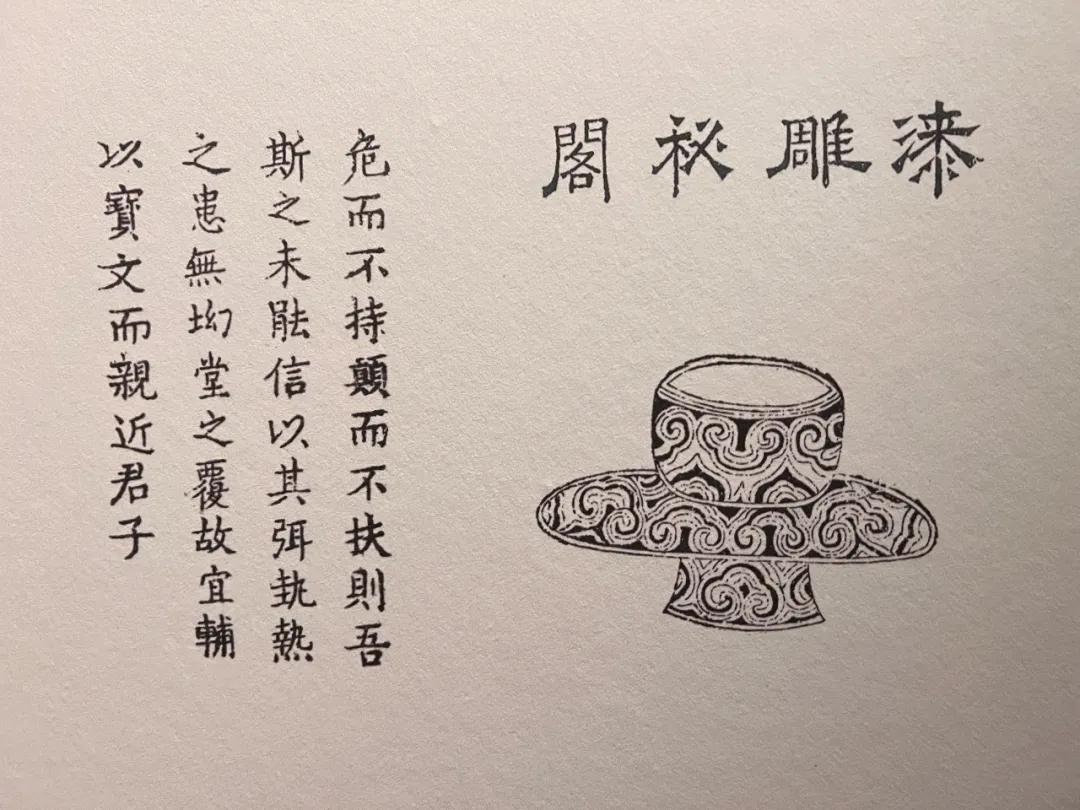 漆雕祕閣
危而不持顛而不扶則吾
斯之未能信以其弭執熱
之患無坳堂之覆故宜輔
以寶文而親近君子